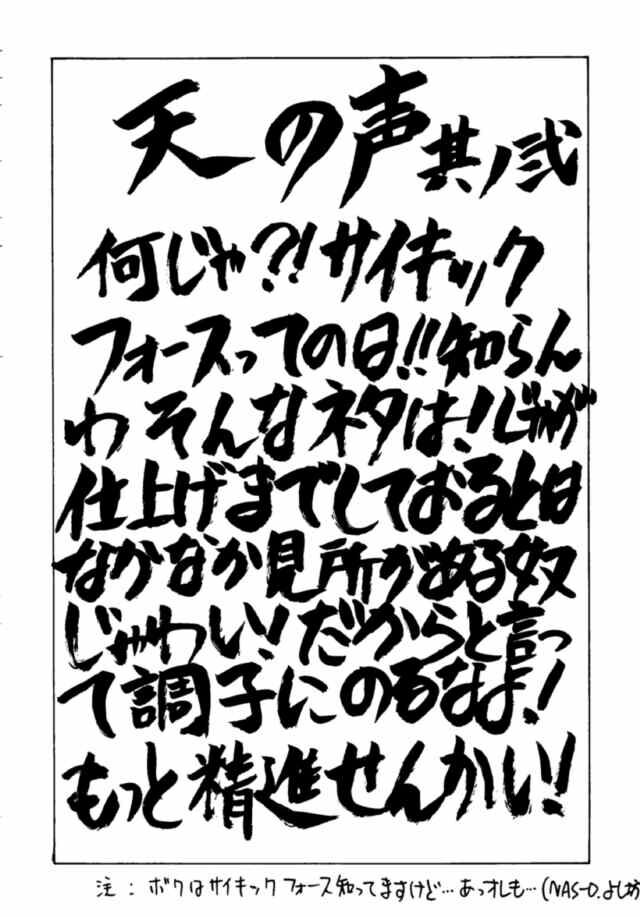 天の声其ノ弐
何じゃ?!サイキック
フォースってのは!!知らん
わそんなネタは!じゃが
仕上げまでしておるとは
なかなか見所がある奴
じゃわい!だからと言っ
て調子にのるなよ!
もっと精進せんかい!
注：ボクはサイキックフォース知ってますけど…あっオレも…(NAS-O.よしか